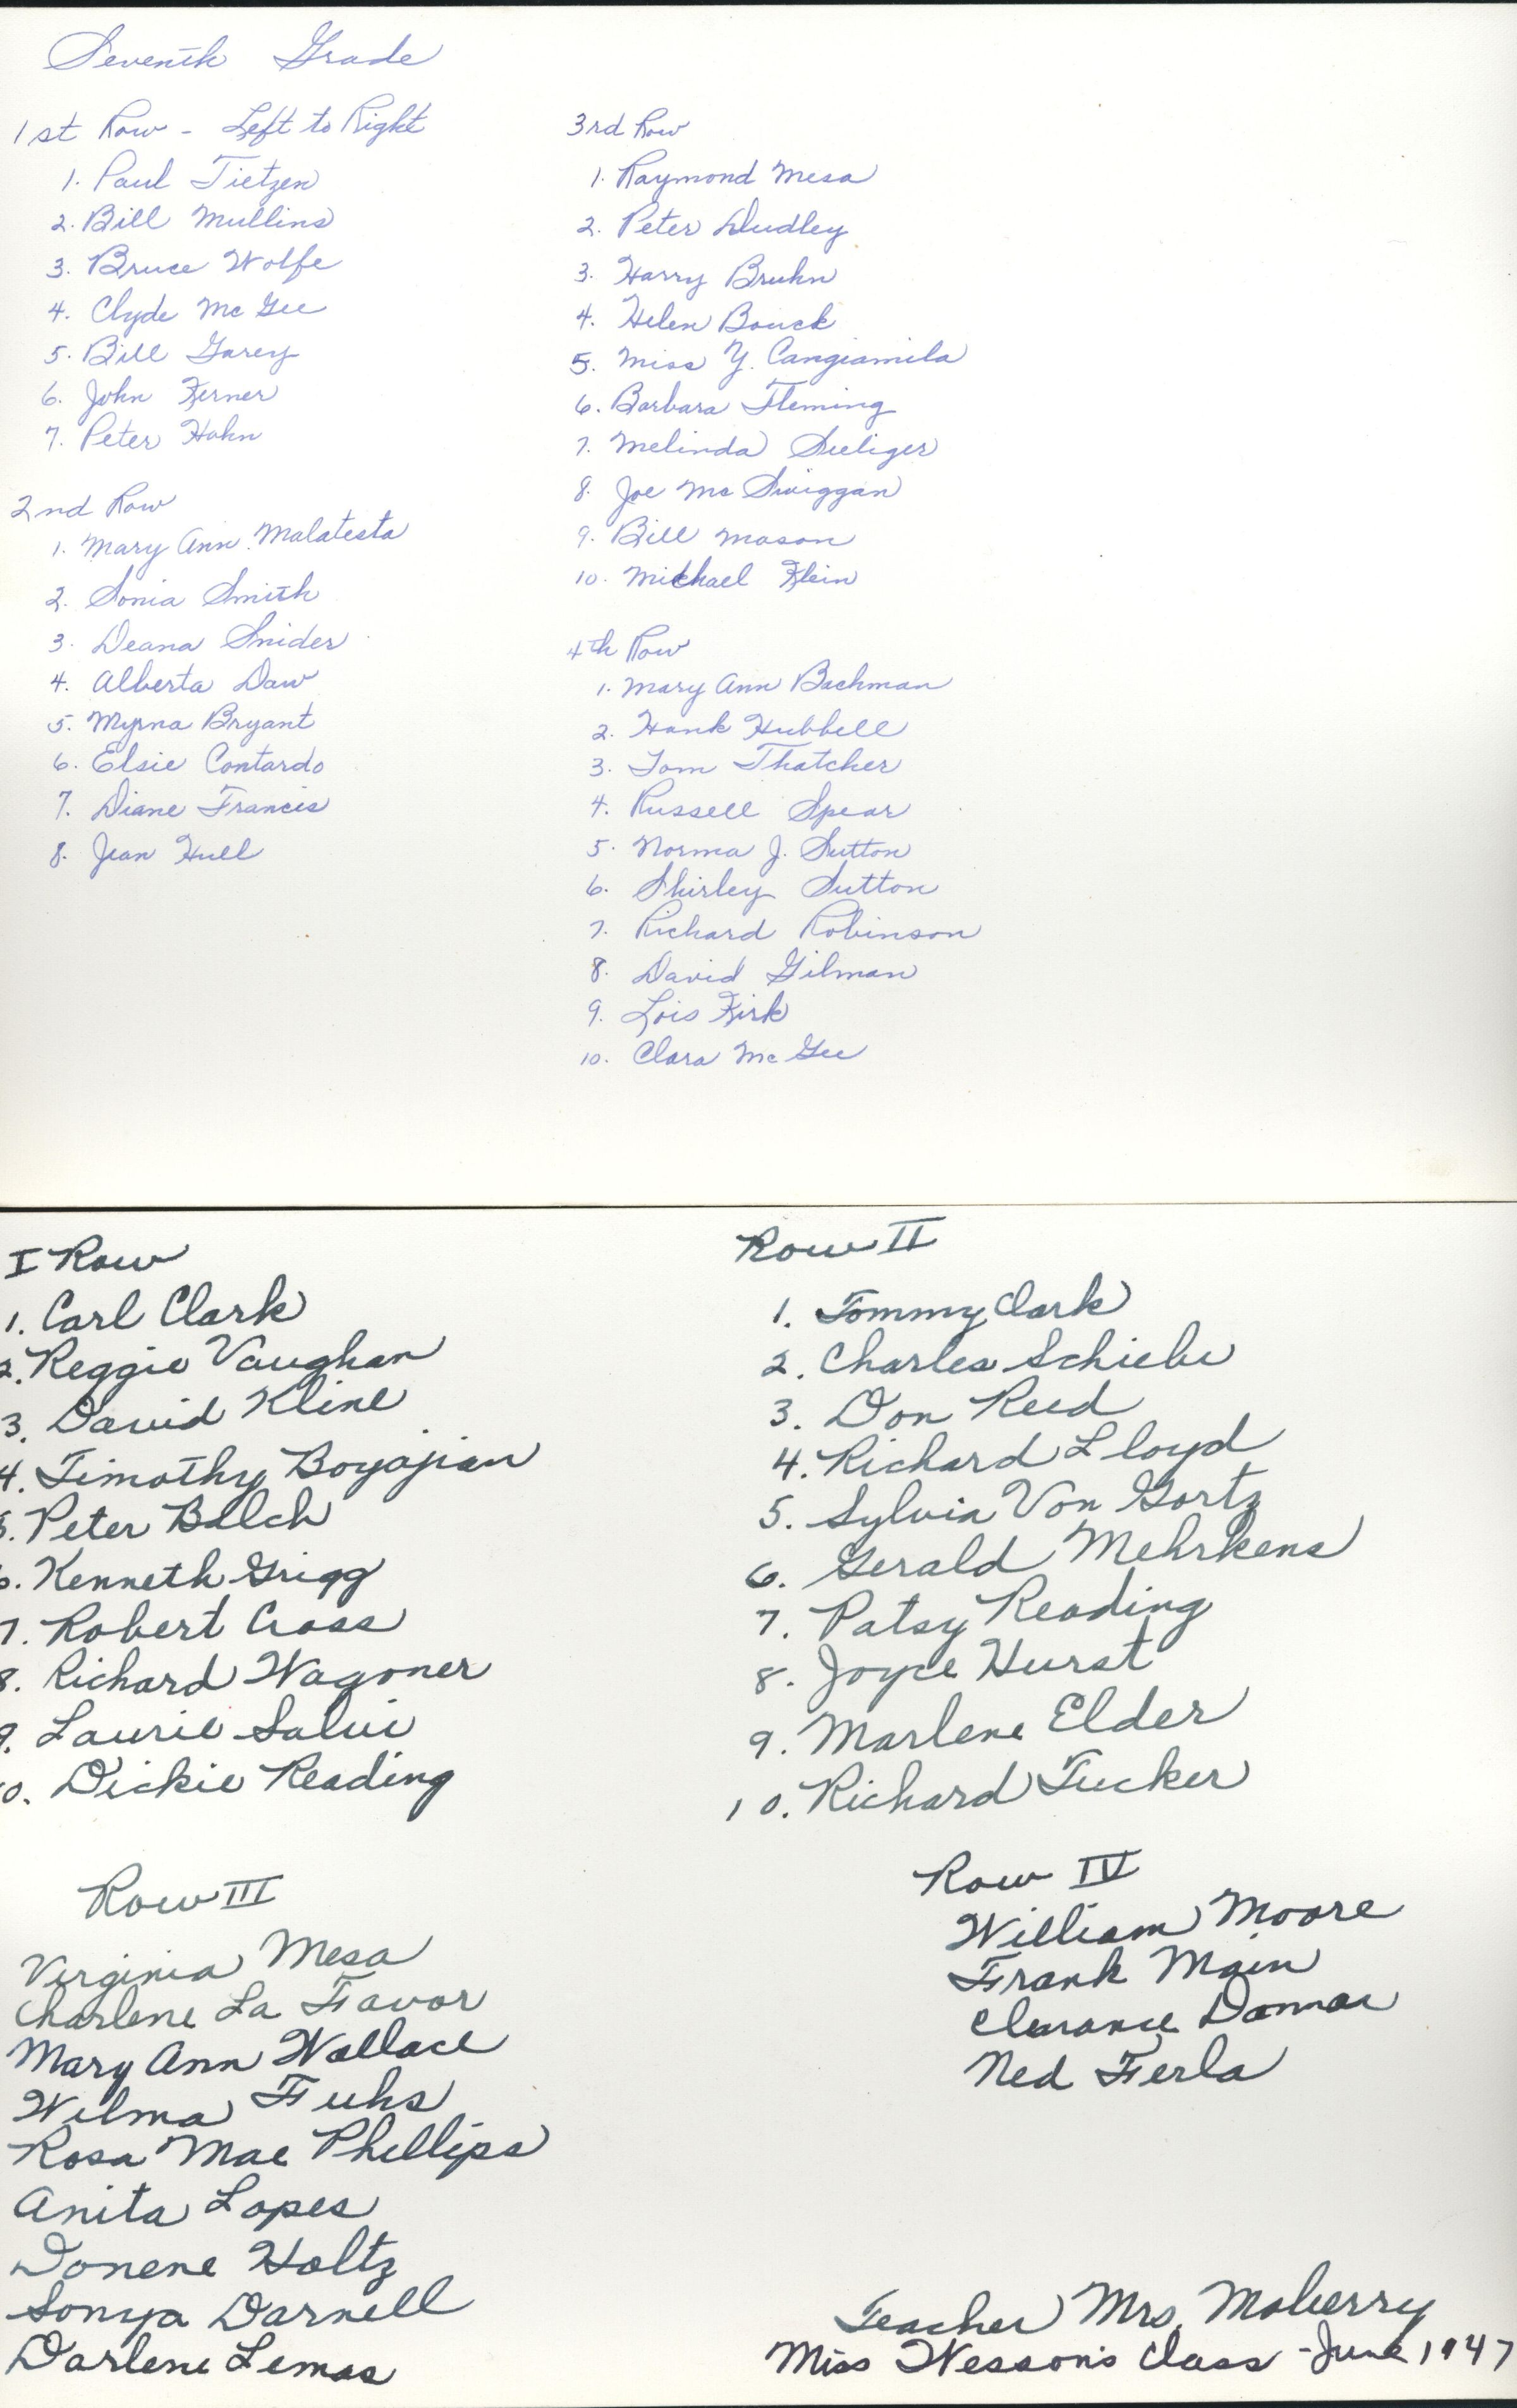 Seventh Grade
1st Row - Left to Right
1. Paul Tietzen
2. Bill Mullins
3. Bruce Wolfe
4. Clyde McGee
5. Bill Garey
6. John Kerner
7. Peter Hahn
2nd Row
1. Mary Ann Malatesta
2. Sonia Smith
3. Deana Snider
4. Alberta Daw
5. Myrna Bryant
6. Elsie Contardo
7. Diane Francis
8. Jean Hull
3rd Row
1. Raymond Mesa
2. Peter Dudley
3. Harry Bruhn
4. Helen Bouck
5. Miss Y. Cangiamila
6. Barbara Fleming
7. Melinda Seeliger
8. Joe McSwiggan
9. Bill Mason
10. Michael Klein
4th Row
1. Mary Ann Bachman
2. Hank Hubbell
3. Tom Thatcher
4. Russell Spear
5. Norma J. Sutton
6. Shirley Sutton
7. Richard Robinson
8. David Gilman
9. Lois Kirk
10. Clara McGee
I Row
1. Carl Clark
2. Reggie Vaughan
3. David Kline
4. Timothy Boyajian
5. Peter Balch
6. Kenneth Grigg
7. Robert Cross
8. Richard Wagoner
9. Laurie Salvi
0. Dickie Reading
Row II
1. Tommy Clark
2. Charles Schiebe
3. Don Reed
4. Richard Lloyd
5. Sylvia Von Gortz
6. Gerald Mehrkens
7. Patsy Reading
8. Joyce Hurst
9. Marlene Elder
10. Richard Tucker
Row III
Virginia Mesa
Charlene La Favor
Mary Ann Wallace
Wilma Fuhs
Rosa Mae Phillips
Anita Lopes
Donene Holtz
Sonya Darnell
Darlene Lemas
Row IV
William Moore
Frank Main
Clarance
Ned Ferla
Teacher Mrs. Maberry
Miss Wesson's Class - June 1947